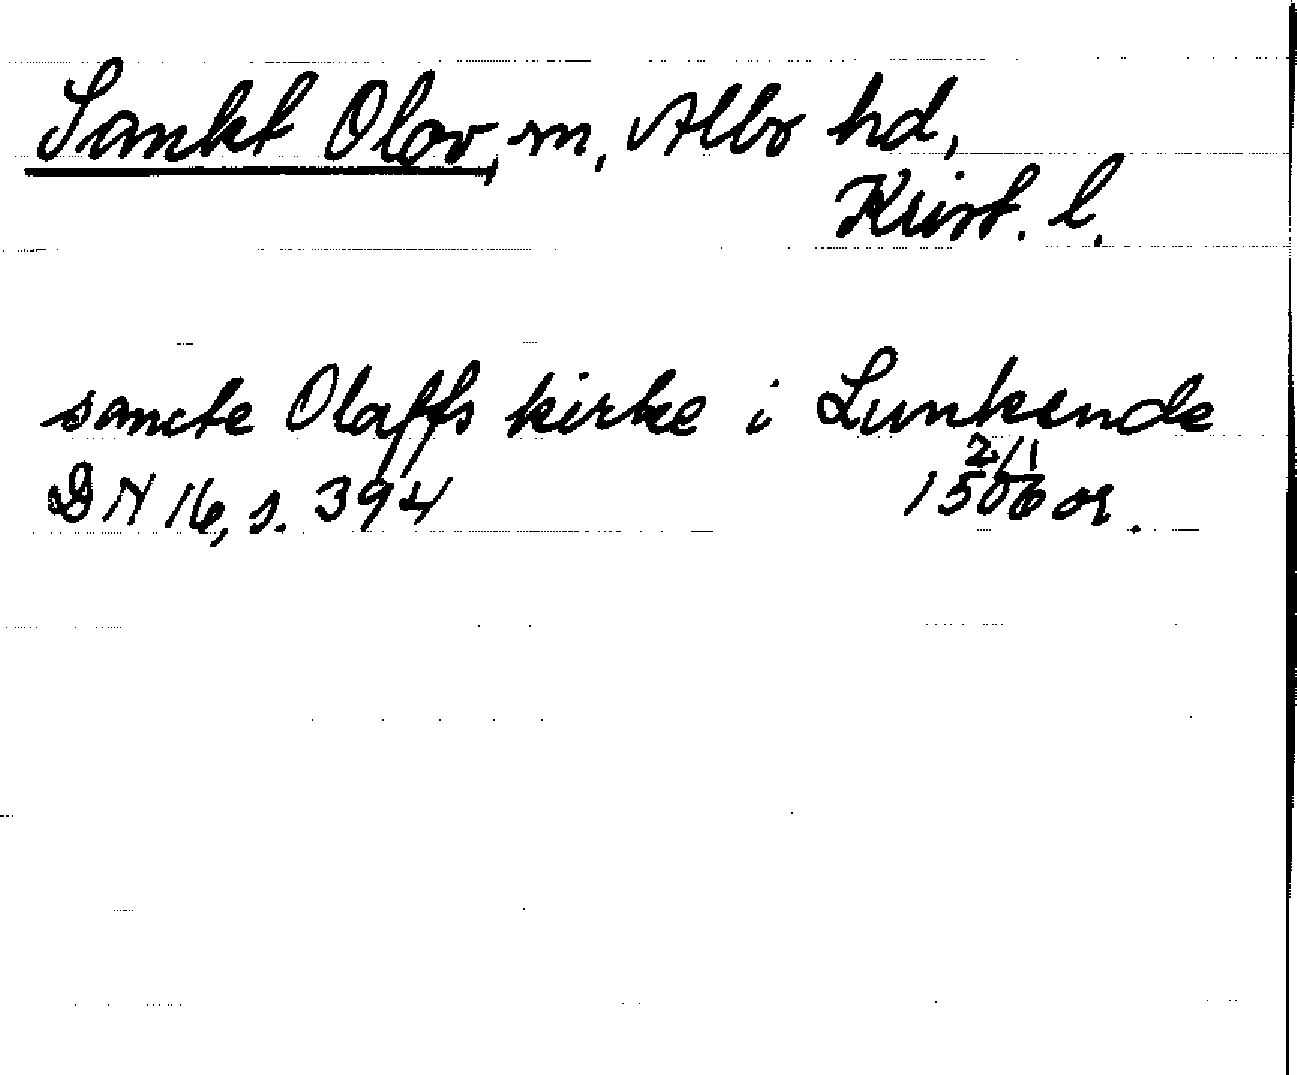 Sankt Olov, sn, Albo hd,
Krist. l.
sancte Olaffs kirke i Lunkende
DN 16, s. 394 2/1 1506 or.